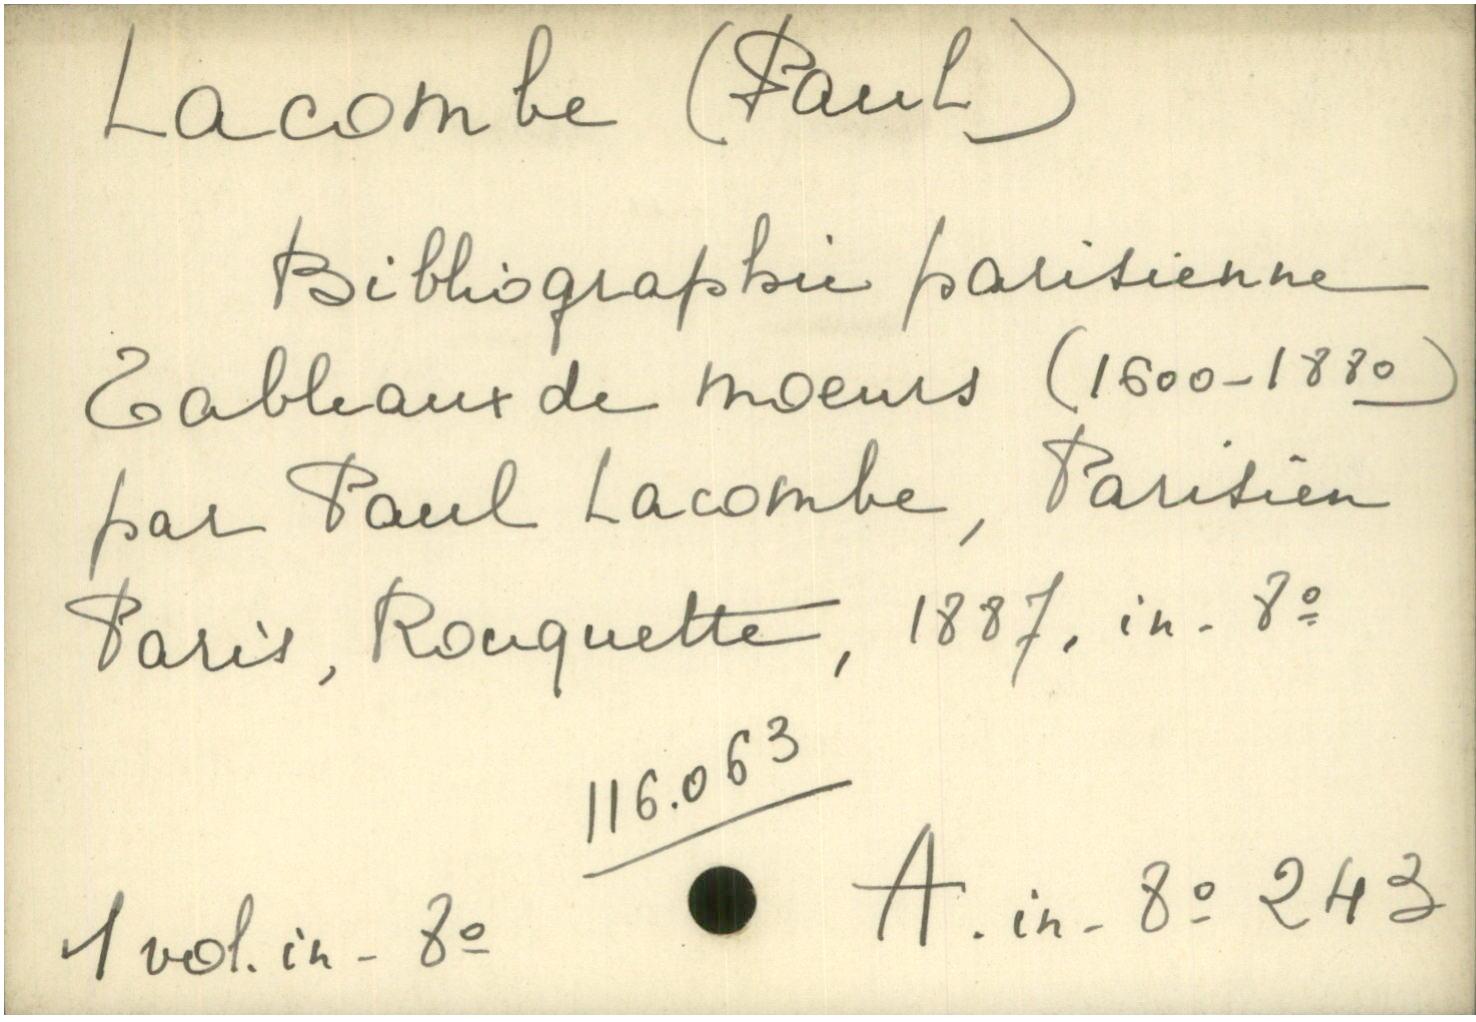 Lacombe (Paul)
Bibliographie parisienne
Tableaux de moeurs (1600-1880)
par Paul Lacombe, Parisien
Paris, Rouquette, 1887, in-8º
116.063
1 vol. in-8º
A. in-8º 243